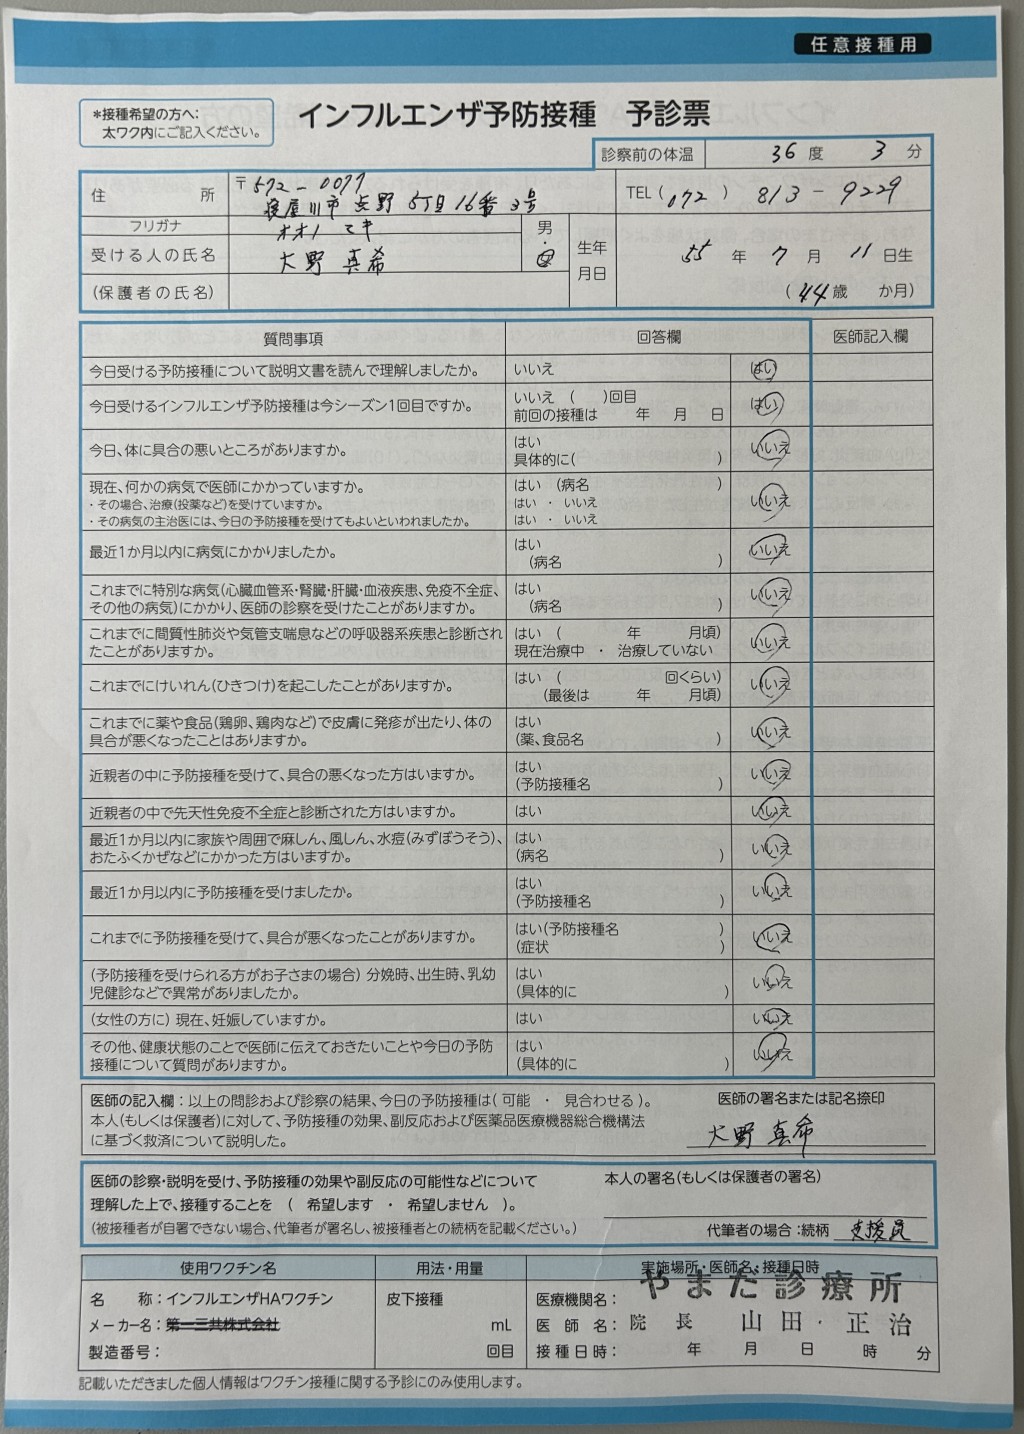 任意接種用
*接種希望の方へ:
太ワク内にご記入ください。
インフルエンザ予防接種 予診票
診察前の体温 36 度 3 分
住所 〒572-0077
寝屋川市 点野 5丁目 16番 3号
TEL (072) 813-9229
フリガナ オオノ マキ
受ける人の氏名 大野 真希
男・女
生年月日 55 年 7 月 11 日生
(44歳 か月)
(保護者の氏名)
質問事項 回答欄 医師記入欄
今日受ける予防接種について説明文書を読んで理解しましたか。 いいえ はい
今日受けるインフルエンザ予防接種は今シーズン1回目ですか。 いいえ ( )回目 はい
前回の接種は 年 月 日
今日、体に具合の悪いところがありますか。 はい いいえ
具体的に( )
現在、何かの病気で医師にかかっていますか。 はい (病名 ) いいえ
・その場合、治療(投薬など)を受けていますか。 はい ・ いいえ
・その病気の主治医には、今日の予防接種を受けてもよいといわれましたか。 はい ・ いいえ
最近1か月以内に病気にかかりましたか。 はい いいえ
(病名 )
これまでに特別な病気(心臓血管系・腎臓・肝臓・血液疾患、免疫不全症、 はい いいえ
その他の病気)にかかり、医師の診察を受けたことがありますか。 (病名 )
これまでに間質性肺炎や気管支喘息などの呼吸器系疾患と診断され はい ( 年 月頃) いいえ
たことがありますか。 現在治療中 ・ 治療していない
これまでにけいれん(ひきつけ)を起こしたことがありますか。 はい ( 回くらい) いいえ
(最後は 年 月頃)
これまでに薬や食品(鶏卵、鶏肉など)で皮膚に発疹が出たり、体の はい いいえ
具合が悪くなったことはありますか。 (薬、食品名 )
近親者の中に予防接種を受けて、具合の悪くなった方はいますか。 はい いいえ
(予防接種名 )
近親者の中で先天性免疫不全症と診断された方はいますか。 はい いいえ
最近1か月以内に家族や周囲で麻しん、風しん、水痘(みずぼうそう)、 はい いいえ
おたふくかぜなどにかかった方はいますか。 (病名 )
最近1か月以内に予防接種を受けましたか。 はい いいえ
(予防接種名 )
これまでに予防接種を受けて、具合が悪くなったことがありますか。 はい(予防接種名 ) いいえ
(症状 )
(予防接種を受けられる方がお子さまの場合) 分娩時、出生時、乳幼 はい いいえ
児健診などで異常がありましたか。 (具体的に )
(女性の方に) 現在、妊娠していますか。 はい いいえ
その他、健康状態のことで医師に伝えておきたいことや今日の予防 はい いいえ
接種について質問がありますか。 (具体的に )
医師の記入欄：以上の問診および診察の結果、今日の予防接種は( 可能 ・ 見合わせる )。
本人(もしくは保護者)に対して、予防接種の効果、副反応および医薬品医療機器総合機構法
に基づく救済について説明した。
医師の署名または記名捺印
大野 真希
医師の診察・説明を受け、予防接種の効果や副反応の可能性などについて
理解した上で、接種することを ( 希望します ・ 希望しません )。
(被接種者が自署できない場合、代筆者が署名し、被接種者との続柄を記載ください。)
本人の署名(もしくは保護者の署名)
代筆者の場合：続柄 支援員
使用ワクチン名 用法・用量 実施場所・医師名・接種日時
名 称：インフルエンザHAワクチン 皮下接種 医療機関名： やまだ診療所
メーカー名：第一三共株式会社 mL 医師名： 院長 山田 正治
製造番号： 回目 接種日時： 年 月 日 時 分
記載いただきました個人情報はワクチン接種に関する予診にのみ使用します。